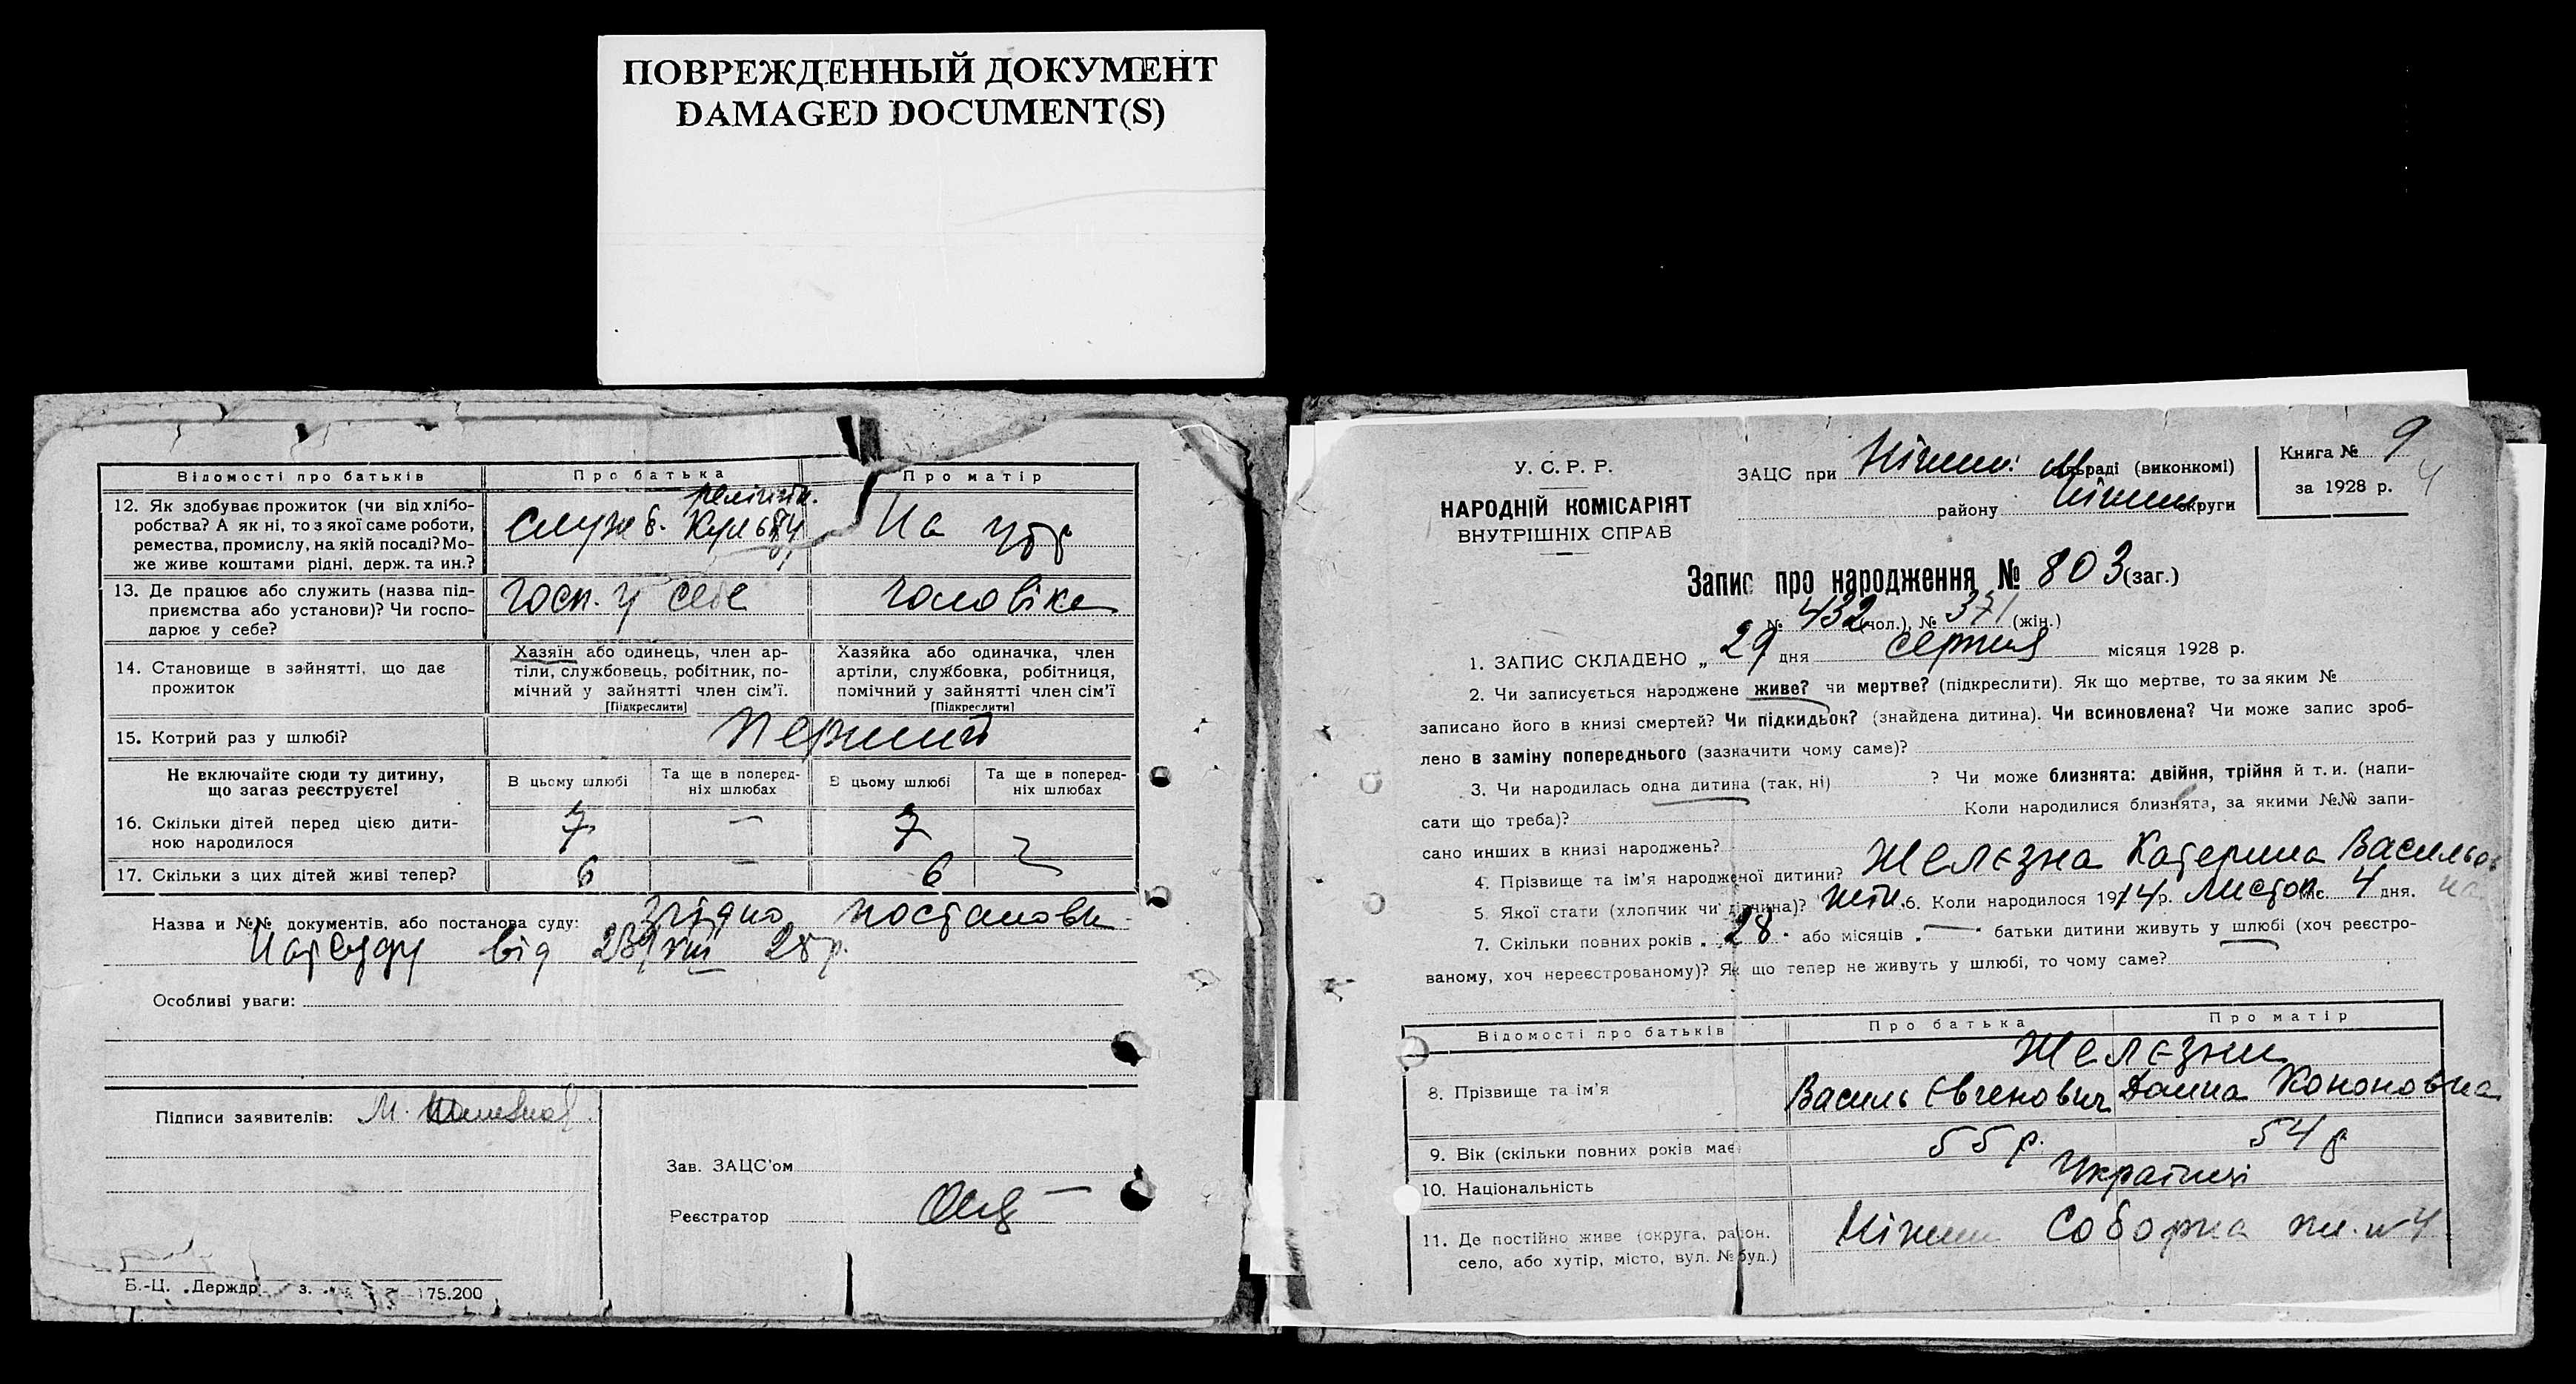 ПОВРЕЖДЕННЫЙ ДОКУМЕНТ
DAMAGED DOCUMENT(S)
Відомості про батьків
Про батька
Про матір
12. Як здобуває прожиток (чи від хлібо-
робства? А як ні, то з якої саме роботи,
ремества, промислу, на якій посаді? Мо-
же живе коштами рідні, держ. та ин.?
служ. релігійн. культу
На утр
13. Де працює або служить (назва під-
приємства або установи)? Чи госпо-
дарює у себе?
госп. у себе
чоловіка
14. Становище в зайнятті, що дає
прожиток
Хазяїн або одинець, член ар-
тіли, службовець, робітник, по-
мічний у зайнятті член сім'ї.
[Підкреслити]
Хазяйка або одиначка, член
артіли, службовка, робітниця,
помічний у зайнятті член сім'ї
[Підкреслити]
15. Котрий раз у шлюбі?
перший
Не включайте сюди ту дитину,
що зараз реєструєте!
В цьому шлюбі
Та ще в поперед-
ніх шлюбах
В цьому шлюбі
Та ще в поперед-
ніх шлюбах
16. Скільки дітей перед цією дити-
ною народилося
7 — 7
17. Скільки з цих дітей живі тепер?
6 — 6
Назва и №№ документів, або постанова суду: згідно постанови
Нарсуду від 28/VIII 28 р.
Особливі уваги:
Підписи заявителів: М.
Зав. ЗАЦС'ом
Реєстратор
Б.-Ц. „Держдр. з. 175.200
У. С. Р. Р.
НАРОДНІЙ КОМІСАРІЯТ
ВНУТРІШНІХ СПРАВ
ЗАЦС при Ніжин. М льраді (виконкомі)
району Ніжин округи
Книга № 9
за 1928 р. 4
Запис про народження № 803 (заг.)
№ 432 (чол.), № 371 (жін.)
1. ЗАПИС СКЛАДЕНО „ 29 дня серпня місяця 1928 р.
2. Чи записується народжене живе? чи мертве? (підкреслити). Як що мертве, то за яким №
записано його в книзі смертей? Чи підкидьок? (знайдена дитина). Чи всиновлена? Чи може запис зроб-
лено в заміну попереднього (зазначити чому саме)?
3. Чи народилась одна дитина (так, ні) ? Чи може близнята: двійня, трійня й т. и. (напи-
сати що треба)? Коли народилися близнята, за якими №№ запи-
сано инших в книзі народжень?
4. Прізвище та ім'я народженої дитини? Желєзна Катерина Васильов
на
5. Якої стати (хлопчик чи дівчина)? жін. 6. Коли народилося 1914 р. Листоп. міс. 4 дня.
7. Скільки повних років „ 28 " або місяців „ — " батьки дитини живуть у шлюбі (хоч реєстро-
ваному, хоч нереєстрованому)? Як що тепер не живуть у шлюбі, то чому саме?
Відомості про батьків
Про батька
Про матір
Желєзни
8. Прізвище та ім'я
Василь Євгенович
Домна Кононовна
9. Вік (скільки повних років має)
55 р.
54 р
10. Національність
Українці
11. Де постійно живе (округа, район.
село, або хутір, місто, вул. № буд.)
Ніжин Соборна пл. №4